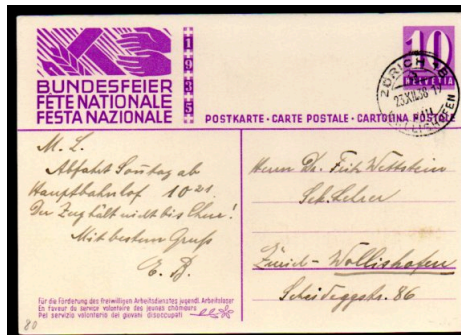 BUNDESFEIER
FÊTE NATIONALE
FESTA NAZIONALE
1935
10
HELVETIA
ZÜRICH
23.XII.38
POSTKARTE · CARTE POSTALE · CARTOLINA POSTALE
M. L.
Abfahrt Sonntag ab
Hauptbahnhof 10 21
Der Zug hält nicht bis Chur!
Mit bestem Gruss
E. B.
Herrn Dr. Fritz Wettstein
Sek. Lehrer
Zürich-Wollishofen
Scheideggstr. 86
Für die Förderung des freiwilligen Arbeitsdienstes jugendl. Arbeitsloser
En faveur du service volontaire des jeunes chômeurs
Pel servizio volontario dei giovani disoccupati
80